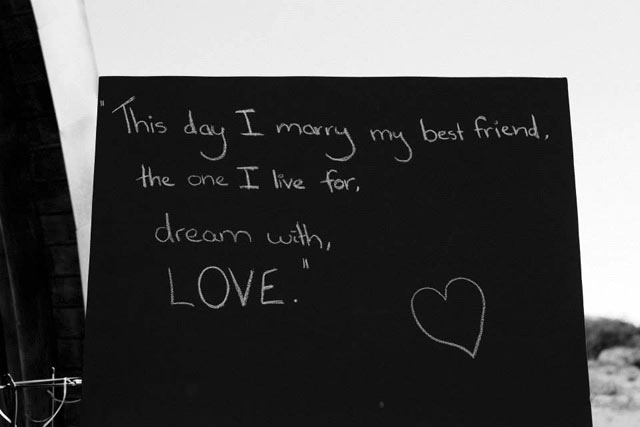 "This day I marry my best friend,
the one I live for,
dream with,
LOVE."